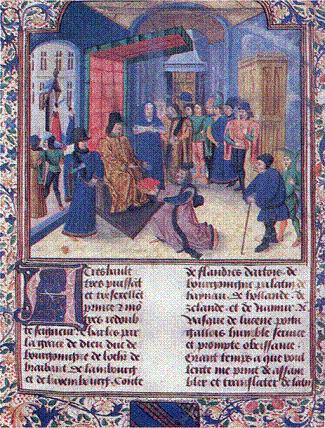 A Treshault
tres puissāt
et tresexellēt
prince & mō
tres redoub
te seigneur Charles par
la grace de dieu duc de
bourgoingne de lothr de
braibant de lambourg
et de luxembourg. Conte
de flandres dartois. de
bourgoingne palatin de
haynau. de hollande. de
zelande. et de namur.
Vasque de lucene portu
galois humble service
et prompte obeissance.
Grant temps a que voul
lente me print de assam
bler et translater de latin